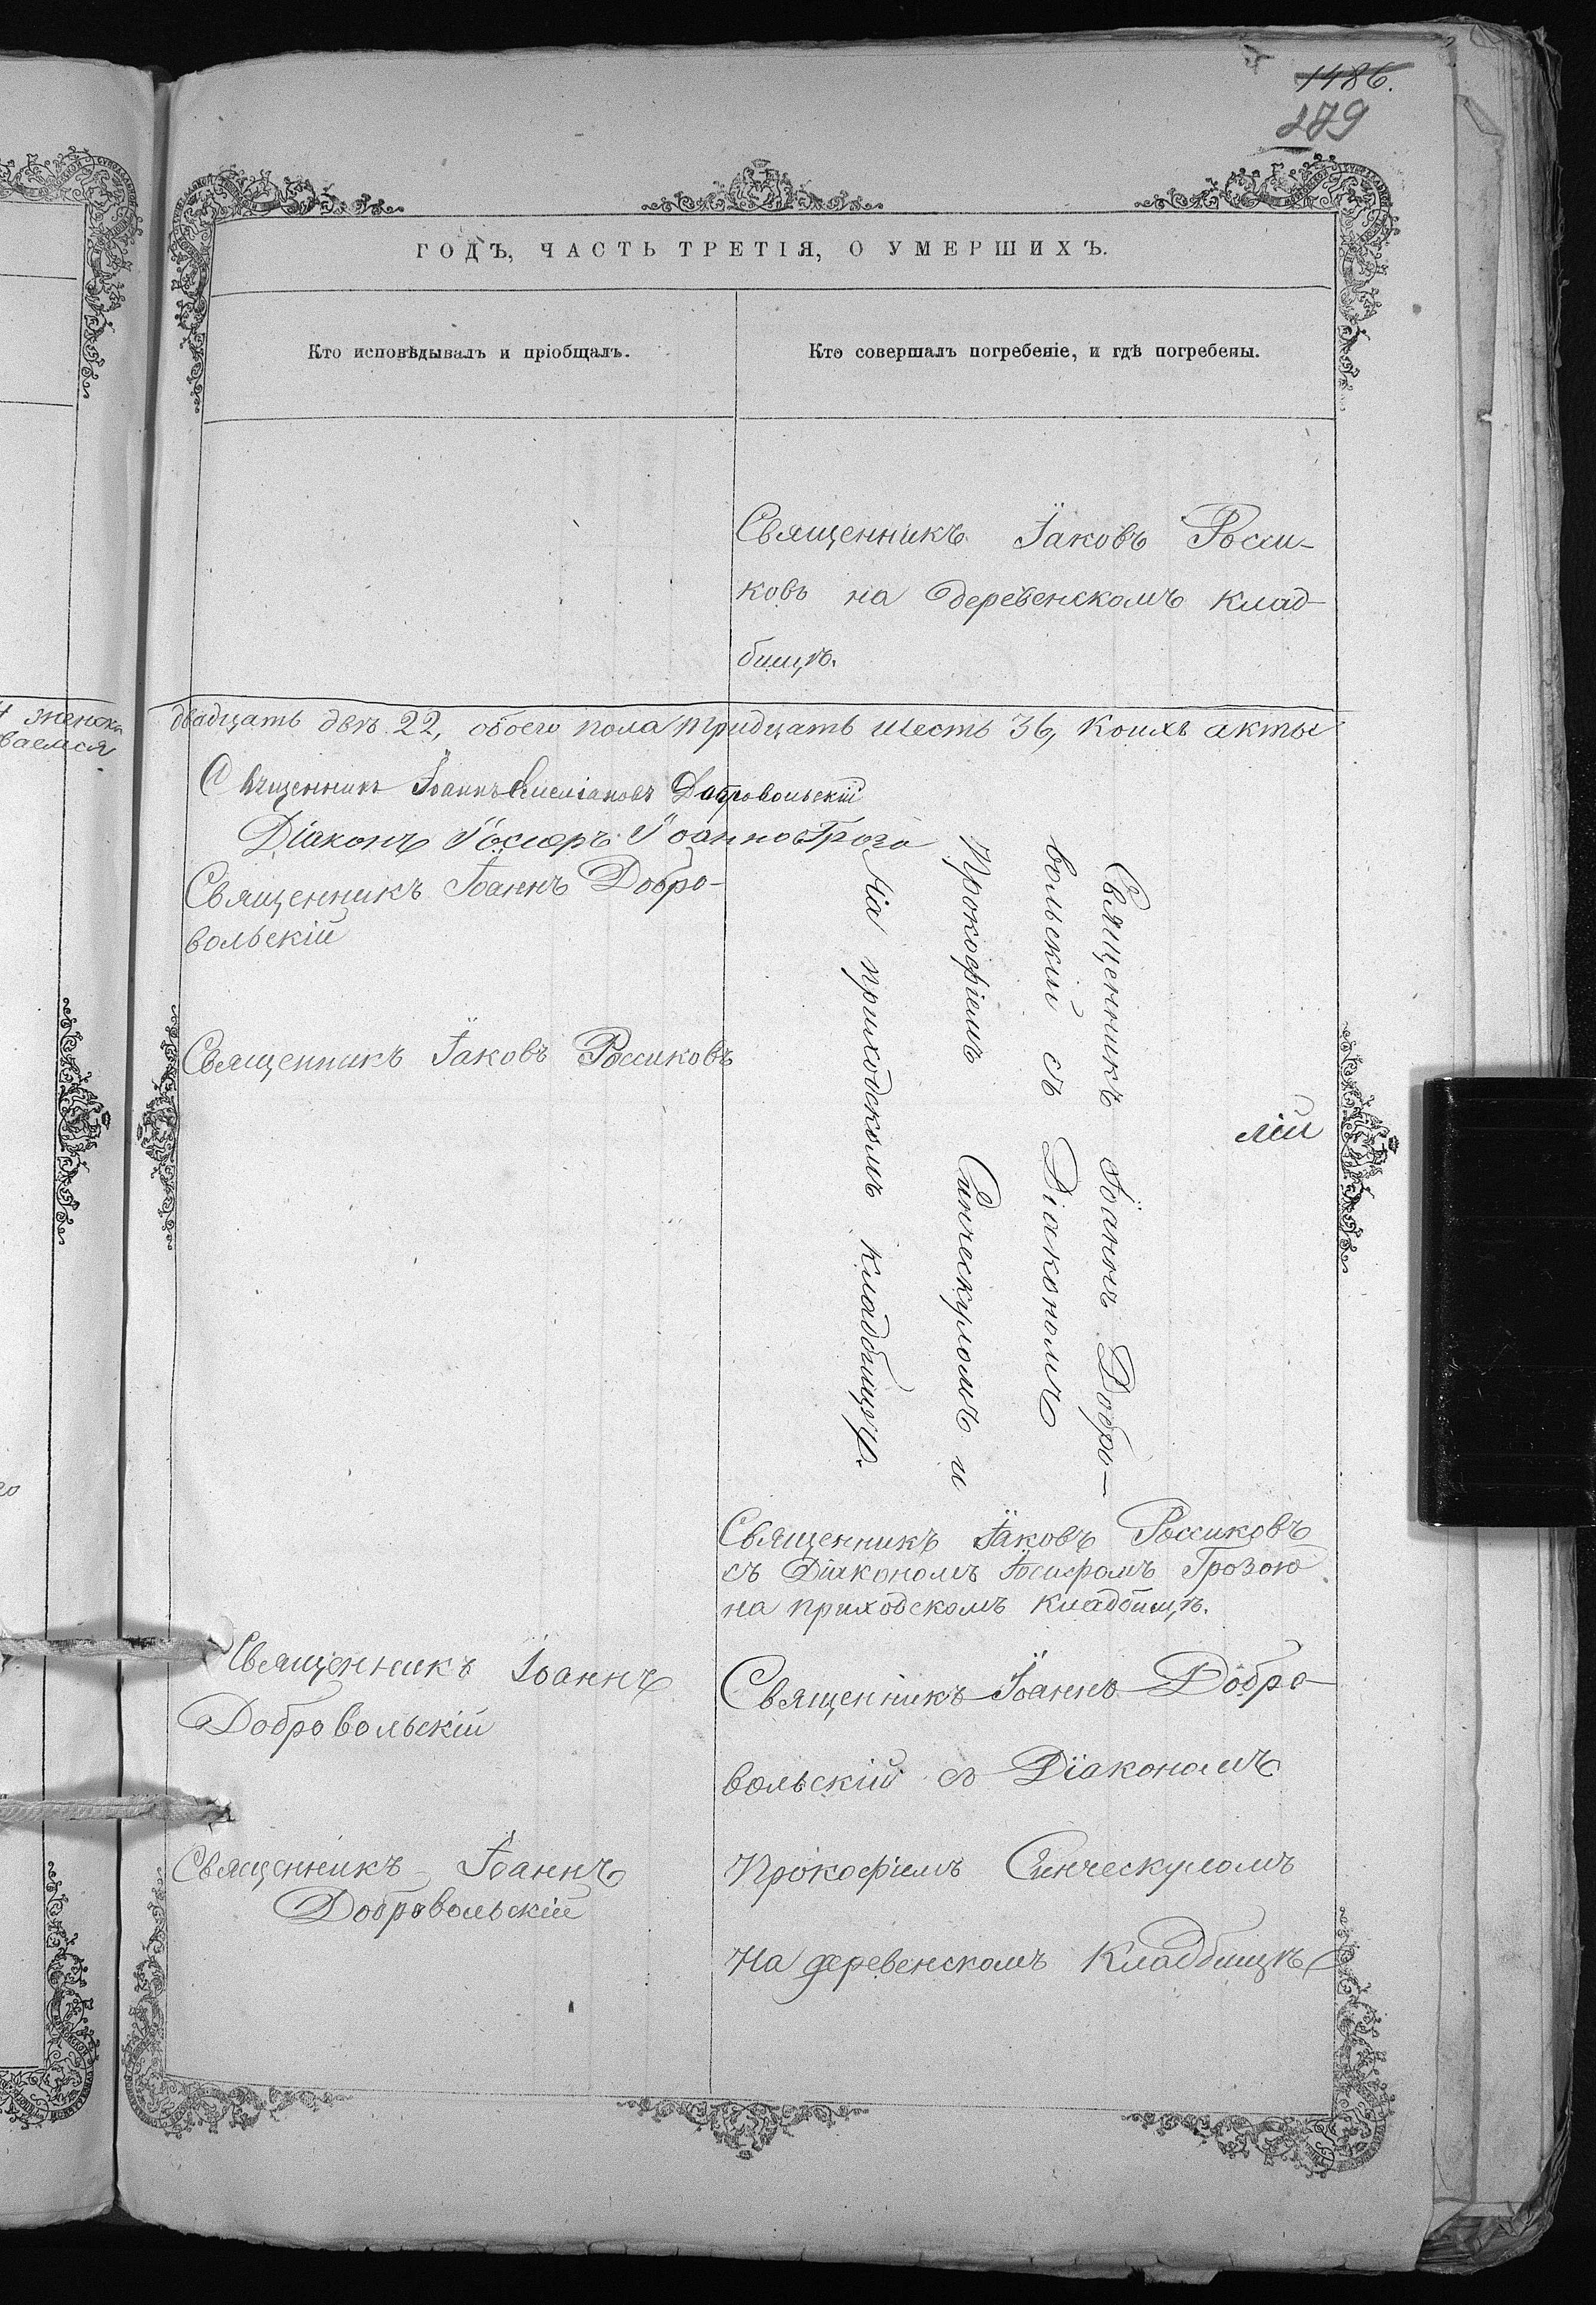 1486.
279
ГОДЪ, ЧАСТЬ ТРЕТІЯ, О УМЕРШИХЪ.
Кто исповѣдывалъ и пріобщалъ.
Кто совершалъ погребеніе, и гдѣ погребены.
Священникъ Іаковъ Росси-
ковъ на деревенскомъ клад-
бищѣ.
двадцать двѣ 22, обоего пола тридцать шесть 36, коихъ акты
Священникъ Іоаннъ Емеліановъ Добровольскій
Діаконъ Іосифъ Іоанновъ Гроза
Священникъ Іоаннъ Добро-
вольскій
Священникъ Іаковъ Россиковъ
Священникъ Іоаннъ Добро-
вольскій съ Діакономъ
Прокофіемъ Синческуломъ и
На приходскомъ кладбищѣ.
Священникъ Іаковъ Россиковъ
съ Діакономъ Іосифомъ Грозою
на приходскомъ кладбищѣ.
Священникъ Іоаннъ
Добровольскій
Священникъ Іоаннъ
Добровольскій
Священникъ Іоаннъ Добро-
вольскій съ Діакономъ
Прокофіемъ Синческуломъ
На деревенскомъ Кладбищѣ